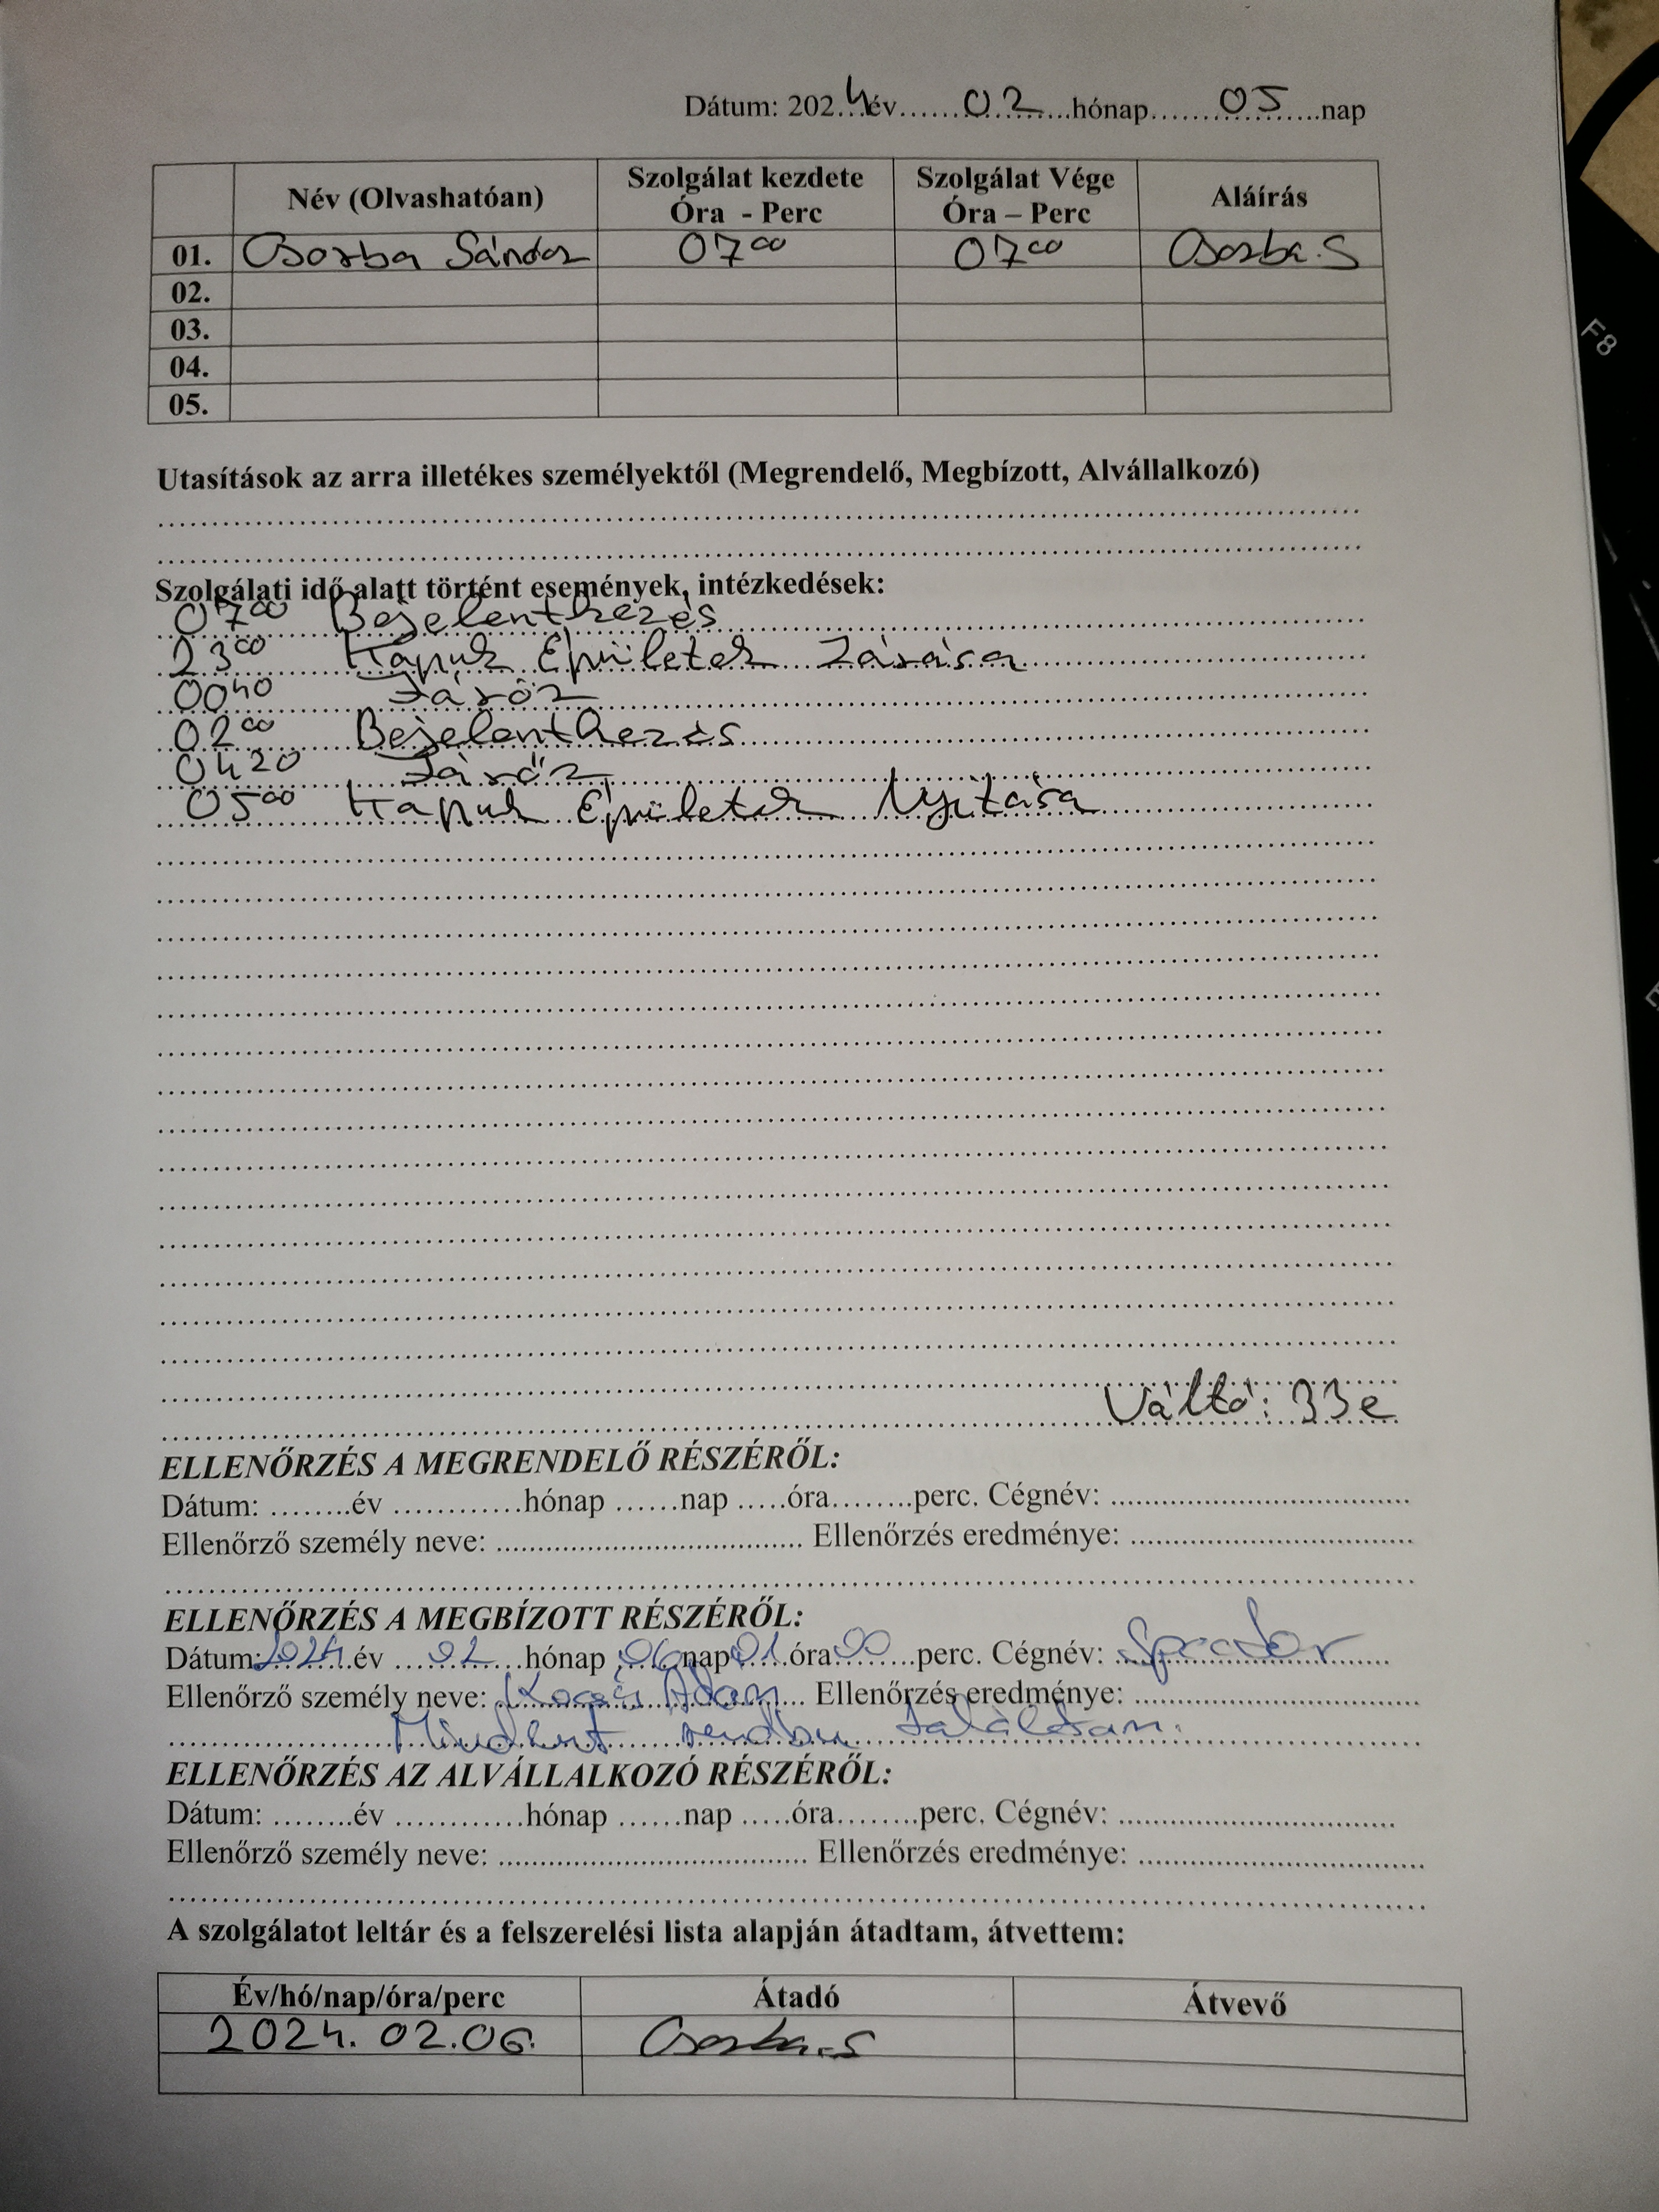 Dátum: 2024év 02 hónap 05 nap
Név (Olvashatóan) Szolgálat kezdete Óra - Perc Szolgálat Vége Óra – Perc Aláírás
01. Csorba Sándor 07 00 07 00 Csorba.S
02.
03.
04.
05.
Utasítások az arra illetékes személyektől (Megrendelő, Megbízott, Alvállalkozó)
Szolgálati idő alatt történt események, intézkedések:
07 00 Bejelentkezés
23 00 Kapuk Épületek Zárása
00 40 Járőr
02 00 Bejelentkezés
04 20 Járőr
05 00 Kapuk Épületek Nyitása
Váltó: 33e
ELLENŐRZÉS A MEGRENDELŐ RÉSZÉRŐL:
Dátum: ........év ............hónap ......nap .....óra........perc. Cégnév: ....................................
Ellenőrző személy neve: ..................................... Ellenőrzés eredménye: ..................................
ELLENŐRZÉS A MEGBÍZOTT RÉSZÉRŐL:
Dátum: 2024 év 02 hónap 06 nap 01 óra 00 perc. Cégnév:
Ellenőrző személy neve: Kocsis Ádám Ellenőrzés eredménye:
Mindent rendben találtam.
ELLENŐRZÉS AZ ALVÁLLALKOZÓ RÉSZÉRŐL:
Dátum: ........év ............hónap ......nap .....óra........perc. Cégnév: ..................................
Ellenőrző személy neve: ..................................... Ellenőrzés eredménye: ..................................
A szolgálatot leltár és a felszerelési lista alapján átadtam, átvettem:
Év/hó/nap/óra/perc Átadó Átvevő
2024. 02.06. Csorba.S
F8